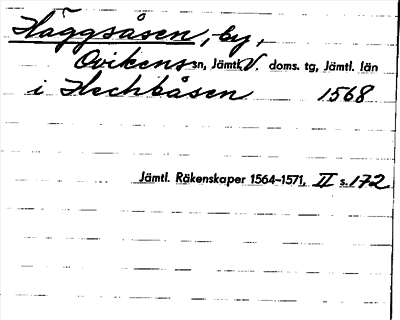 Häggsåsen, by,
Ovikens sn, Jämtl. V. doms. tg, Jämtl. län
i Hechbåsen 1568
Jämtl. Räkenskaper 1564–1571, II s. 172